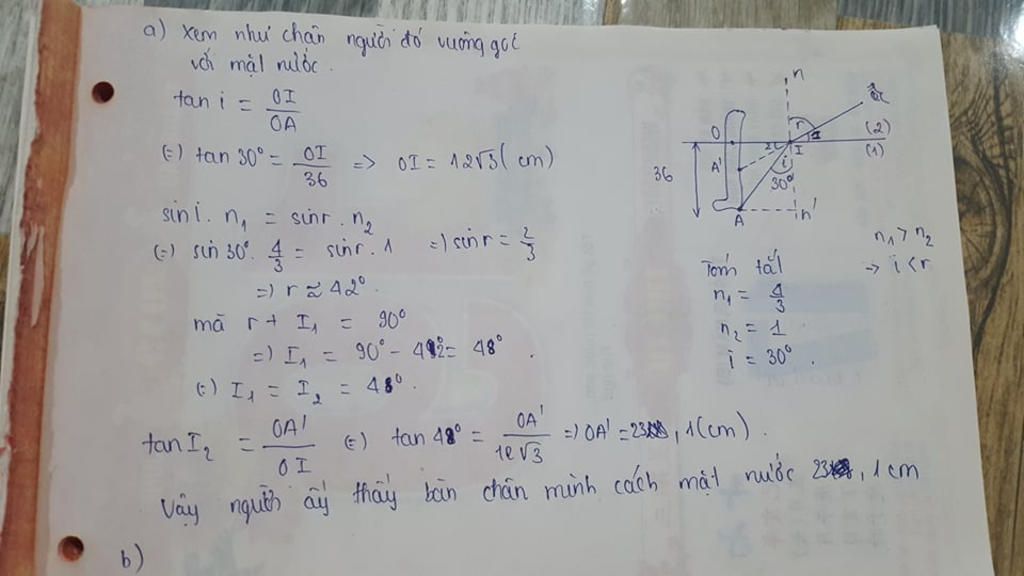 a) Xem như chân người đó vuông góc
với mặt nước.
tan i = OI/OA
(=) tan 30° = OI/36 => OI = 12√3 (cm)
sin i. n₁ = sin r. n₂
(=) sin 30°. 4/3 = sin r. 1 => sin r = 2/3
=> r ≈ 42°.
mà r + I₁ = 90°
=> I₁ = 90° - 42° = 48°.
(=) I₁ = I₂ = 48°.
tan I₂ = OA'/OI (=) tan 48° = OA'/12√3 => OA' = 23,1 (cm).
Vậy người ấy thấy bàn chân mình cách mặt nước 23,1 cm
b)
n
r
O
I
(2)
(1)
A'
i
36
30°
A
n'
n₁ > n₂
=> i < r
Tóm tắt
n₁ = 4/3
n₂ = 1
i = 30°.